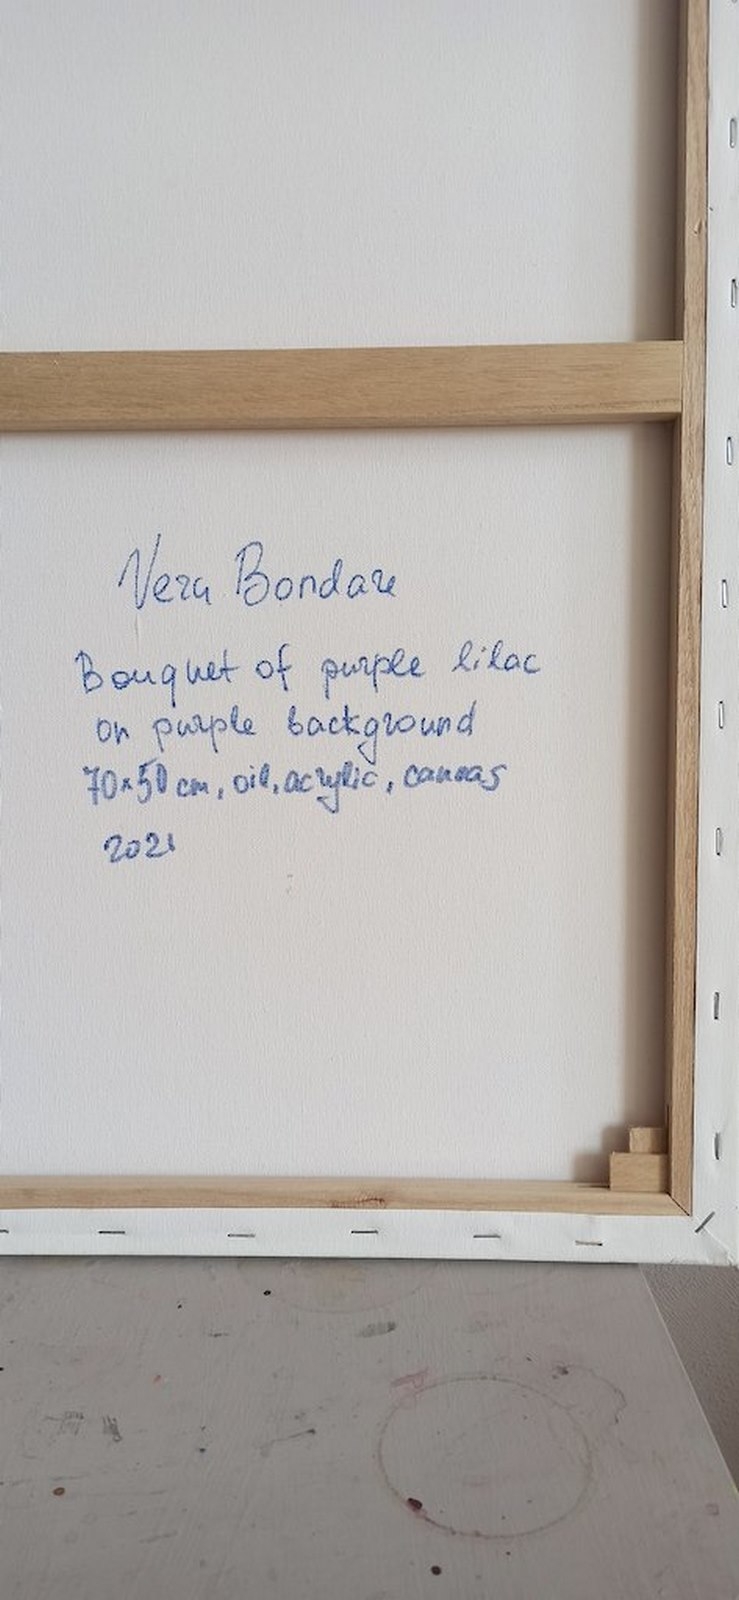 Vera Bondare
Bouquet of purple lilac
on purple background
70x50 cm, oil, acrylic, canvas
2021